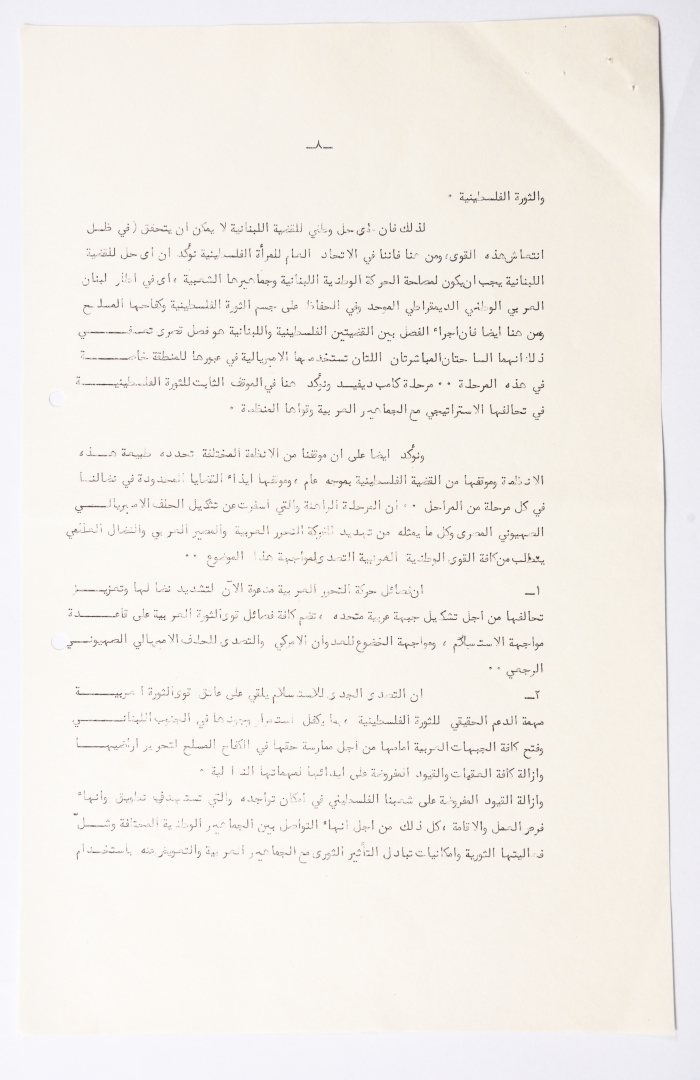 ــ٨ــ
والثورة الفلسطينية ٠
لذلك فان أى حل وطني للقضية اللبنانية لا يمكن أن يتحقق ( في ظل
انتعاش هذه القوى ، ومن هنا فاننا في الاتحاد العام للمرأة الفلسطينية نؤكد ان أى حل للقضية
اللبنانية يجب ان يكون لمصلحة الحركة الوطنية اللبنانية وجماهيرها الشعبية ، أى في اطار لبنان
العربي الوطني الديمقراطي الموحد وفي الحفاظ على جسم الثورة الفلسطينية وكفاحها المسلح
ومن هنا ايضا فان أجراء الفصل بين القضيتين الفلسطينية واللبنانية هو فصل قسرى تعسفــــي
ذلك انهما الساحتان المباشرتان اللتان تستخدمها الامبريالية في عبورها للمنطقة خاصــــة
في هذه المرحلة ٠٠ مرحلة كامب ديفيد ونؤكد هنا في الموقف الثابت للثورة الفلسطينيــــة
في تحالفها الاستراتيجي مع الجماهير العربية وقواها المنظمة ٠
ونؤكد ايضا على ان موقفنا من الانظمة المختلفة تحدده طبيعة هــــذه
الانظمة وموقفها من القضية الفلسطينية بوجه عام ، وموقفها ازاء القضايا المحدودة في نضالنــا
في كل مرحلة من المراحل ٠٠ ان المرحلة الراهنة والتي أسفرت عن تشكيل الحلف الامبريالــــي
الصهيوني المصرى وكل ما يمثله من تهديد لحركة التحرر العربية والمصير العربي والنضال القطعي
يتطلب من كافة القوى الوطنية العربية التصدى لمواجهة هذا الموضوع ٠٠
١ــ ان فصائل حركة التحرر العربية مدعوة الآن لتشديد نضالها وتعزيــــز
تحالفها من اجل تشكيل جبهة عربية متحده ، تضم كافة فصائل قوى الثورة العربية على قاعــــدة
مواجهة الاستسلام ، ومواجهة الخضوع للعدوان الامركي والتصدى للحلف الامبريالي الصهيونــــي
الرجعي ٠٠
٢ــ ان التصدى الجدى للاستسلام يلقي على عاتق قوى الثورة العربيــــة
مهمة الدعم الحقيقي للثورة الفلسطينية ، بما يكفل استمرار وجودها في الجنوب اللبنانــــي
وفتح كافة الجبهات العربية امامها من أجل ممارسة حقها في الكفاح المسلح لتحرير أراضيهــــا
وازالة كافة العقبات والقيود المفروضة على ادائها لمهماتها النضالية ٠
وازالة القيود المفروضة على شعبنا الفلسطيني في أمكان تواجده والتي تستهدف تطويق وانهاء
فرص العمل والاقامة ، كل ذلك من اجل انهاء التواصل بين الجماهير الوطنية المختلفة وشــــلّ
فعاليتها الثورية وامكانيات تبادل التأثير الثورى مع الجماهير العربية والتعويض عنه باستخــدام